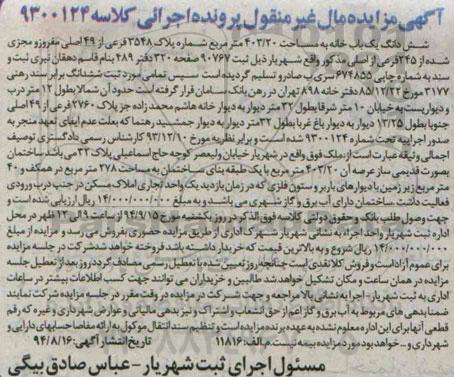 آگهی مزایده مال غیر منقول پرونده اجرائی کلاسه ۹۳۰۰۱۲۴
شش دانگ یک باب خانه به مساحت ۴۰۳/۲۰ متر مربع شماره پلاک ۳۵۴۸ فرعی از ۴۹ اصلی مفروز و مجزی
شده از ۲۴۵ فرعی از اصلی مذکور واقع شهریار ذیل ثبت ۹۰۷۶۷ صفحه ۳۲۰ دفتر ۲۸۹ بنام قاسم دهقان نیری ثبت و
سند به شماره چاپی ۶۷۴۸۵۵ سری ب صادر و تسلیم گردیده است سپس تمامی مورد ثبت ششدانگ برابر سند رهنی
۳۱۷۷ مورخ ۸۵/۱۲/۲۲ دفتر خانه ۸۹۸ تهران در رهن بانک سامان قرار گرفته است حدود آن شمالا بطول ۱۲ متر درب
و دیواریست به خیابان ۱۰ متر شرقا بطول ۳۲ متر دیوار به دیوار خانه هاشم محمد زاده جز پلاک ۲۷۶۰ فرعی از ۴۹ اصلی
جنوبا بطول ۱۳/۲۵ دیوار به دیوار باغ غربا بطول ۳۲ متر دیوار به دیوار جمشید رهنما که بعلت عدم ایفای تعهد منجر به
صدور اجرائیه تحت شماره ۹۳۰۰۱۲۴ شده است و برابر نظریه مورخ ۹۳/۱۲/۱۰ کارشناس رسمی دادگستری توصیف
اجمالی وثیقه عبارت است از: ملک فوق واقع در شهریار خیابان ولیعصر کوچه حاج اسماعیلی پلاک ۳۲ می باشد ساختمان
بصورت قدیمی ساز عرصه آن ۴۰۳/۲۰ متر مربع با یک طبقه بنای ساختمان به مساحت ۲۷۸ متر مربع در همکف و ۴۰
متر مربع زیر زمین با دیوارهای باربر و ستون فلزی که در زمان بازدید یک واحد تجاری املاک مسکن در جنب درب ورودی
فعالیت داشت ساختمان دارای آب برق و گاز شهری می باشد و به مبلغ ۱۴/۰۰۰/۰۰۰/۰۰۰ ریال ارزیابی شده است و
جهت وصول طلب بانک و حقوق دولتی کلاسه فوق الذکر در روز یکشنبه مورخ ۹۴/۹/۱۵ از ساعت ۹ الی ۱۲ ظهر در محل
اداره ثبت شهریار واحد اجراء به نشانی شهریار شهرک اداری از طریق مزایده حضوری بفروش می رسد و مزایده از مبلغ
۱۴/۰۰۰/۰۰۰/۰۰۰ ریال شروع و به بالاترین قیمت که خریدار داشته باشد فروخته خواهد شد شرکت در جلسه مزایده
برای عموم آزاد است و فروش کلا نقدی است چنانچه روز تعیین شده با تعطیل رسمی مصادف گردد روز بعد از تعطیل جلسه
مزایده در همان ساعت و مکان تشکیل خواهد شد طالبین و خریداران می توانند جهت کسب اطلاعات بیشتر در ساعات
اداری به ثبت شهریار - اجرا به نشانی بالا مراجعه و جهت شرکت در مزایده در وقت مقرر در جلسه مزایده شرکت نمایند
ضمنا بدهی های مربوط به آب برق و گاز اعم از حق انشعاب و اشتراک و نیز بدهی مالیاتی و عوارض شهرداری و غیره که رقم
قطعی آنها برای این اداره معلوم نشده به عهده برنده مزایده است و تنظیم سند انتقال موکول به ارائه مفاصا حسابهای دارایی و
شهرداری و ... خواهد بود مورد مزایده بیمه نیست. م.الف: ۱۱۸۱۶ تاریخ انتشار آگهی: ۹۴/۸/۱۶
مسئول اجرای ثبت شهریار - عباس صادق بیگی